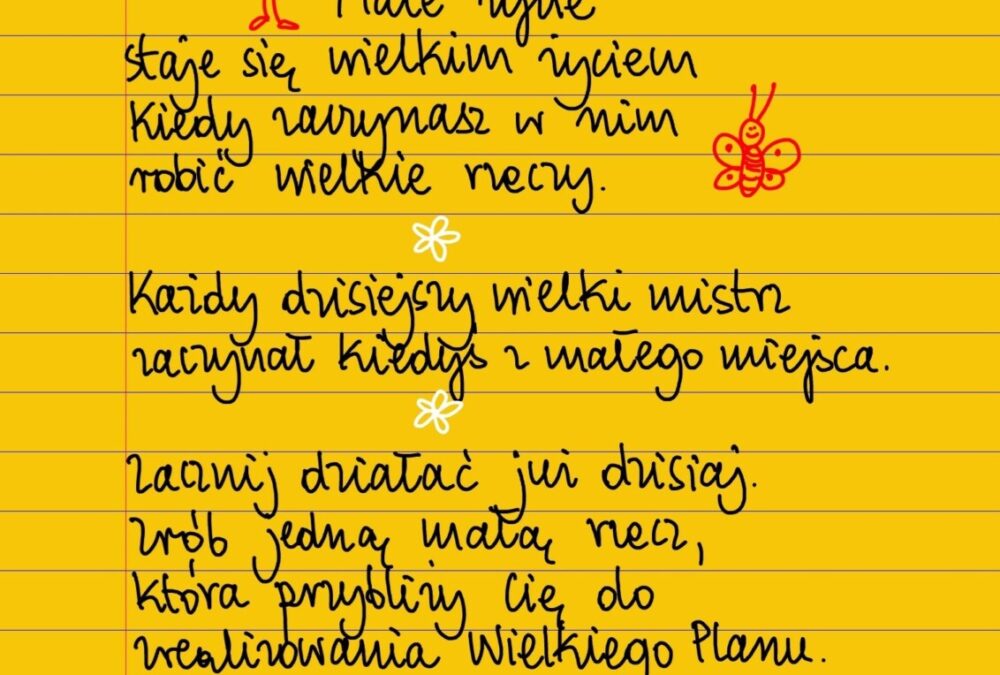 Małe życie
staje się wielkim życiem
Kiedy zaczynasz w nim
robić wielkie rzeczy.
Każdy dzisiejszy wielki mistrz
zaczynał kiedyś z małego miejsca.
Zacznij działać już dzisiaj.
Zrób jedną małą rzecz,
która przybliży Cię do
zrealizowania Wielkiego Planu.